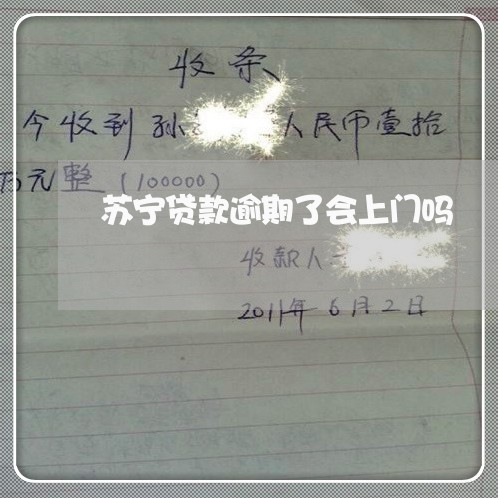 收条
今收到孙 人民币壹拾
万元整(100000)
苏宁贷款逾期了会上门吗
收款人
2011年6月2日